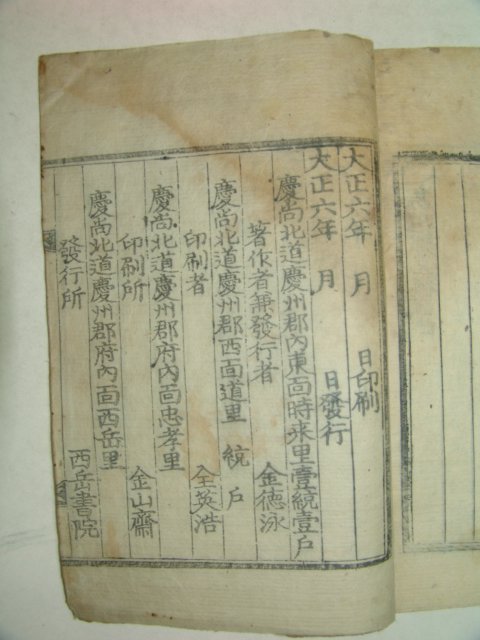 大正六年 月 日印刷
大正六年 月 日發行
慶尚北道慶州郡內東面時来里壹統壹戶
著作者兼發行者 金德泳
慶尚北道慶州郡西面道里 統 戶
印刷者 全英浩
慶尚北道慶州郡府內面忠孝里
印刷所 金山齋
慶尚北道慶州郡府內面西岳里
發行所 西岳書院